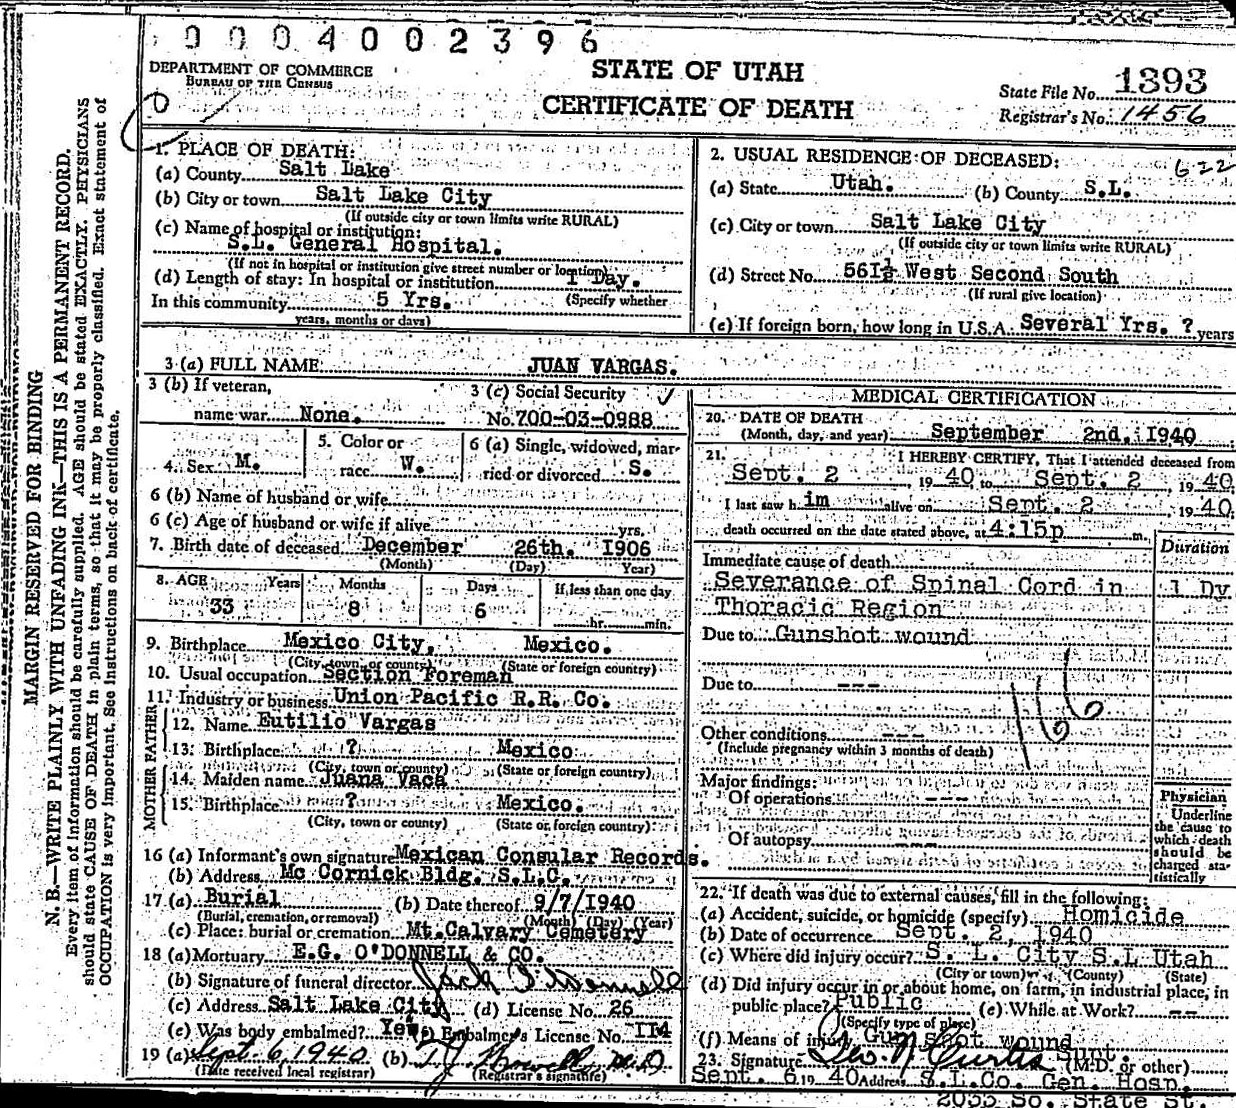 0004002396
DEPARTMENT OF COMMERCE
BUREAU OF THE CENSUS
STATE OF UTAH
CERTIFICATE OF DEATH
State File No. 1393
Registrar's No. 1456
MARGIN RESERVED FOR BINDING
N. B.—WRITE PLAINLY WITH UNFADING INK—THIS IS A PERMANENT RECORD.
Every item of information should be carefully supplied. AGE should be stated EXACTLY. PHYSICIANS
should state CAUSE OF DEATH in plain terms, so that it may be properly classified. Exact statement of
OCCUPATION is very important. See instructions on back of certificate.
1. PLACE OF DEATH:
(a) County Salt Lake
(b) City or town Salt Lake City
(If outside city or town limits write RURAL)
(c) Name of hospital or institution:
S.L. General Hospital.
(If not in hospital or institution give street number or location)
(d) Length of stay: In hospital or institution 1 Day.
In this community 5 Yrs. (Specify whether
years, months or days)
2. USUAL RESIDENCE OF DECEASED: 622
(a) State Utah. (b) County S.L.
(c) City or town Salt Lake City
(If outside city or town limits write RURAL)
(d) Street No. 56I½ West Second South
(If rural give location)
(e) If foreign born, how long in U.S.A. Several Yrs. ? years
3 (a) FULL NAME JUAN VARGAS.
3 (b) If veteran,
name war None.
3 (c) Social Security
No. 700-03-0988
4. Sex M.
5. Color or
race W.
6 (a) Single, widowed, mar-
ried or divorced S.
6 (b) Name of husband or wife
6 (c) Age of husband or wife if alive yrs.
7. Birth date of deceased December 26th. I906
(Month) (Day) (Year)
8. AGE Years Months Days If less than one day
33 8 6 hr. min.
9. Birthplace Mexico City, Mexico.
(City, town, or county) (State or foreign country)
10. Usual occupation Section Foreman
11. Industry or business Union Pacific R.R. Co.
FATHER
12. Name Eutilio Vargas
13. Birthplace ? Mexico
(City, town or county) (State or foreign country)
MOTHER
14. Maiden name Juana Vaca
15. Birthplace ? Mexico.
(City, town or county) (State or foreign country)
16 (a) Informant's own signature Mexican Consular Records.
(b) Address Mc Cornick Bldg. S.L.C.
17 (a) Burial (b) Date thereof 9/7/1940
(Burial, cremation, or removal) (Month) (Day) (Year)
(c) Place: burial or cremation Mt.Calvary Cemetery
18 (a) Mortuary E.G. O'DONNELL & CO.
(b) Signature of funeral director Jack O'Donnell
(c) Address Salt Lake City (d) License No. 26
(e) Was body embalmed? Yes. Embalmer's License No. II4
19 (a) Sept. 6, 1940 (b) M.D.
(Date received local registrar) (Registrar's signature)
MEDICAL CERTIFICATION
20. DATE OF DEATH
(Month, day, and year) September 2nd. I940
21. I HEREBY CERTIFY, That I attended deceased from
Sept. 2, 19 40, to Sept. 2, 19 40
I last saw h im alive on Sept. 2, 19 40.
death occurred on the date stated above, at 4:15p m.
Duration
Immediate cause of death
Severance of Spinal Cord in 1 Dy.
Thoracic Region
Due to Gunshot wound
Due to ---
166
Other conditions ---
(Include pregnancy within 3 months of death)
Major findings:
Of operations ---
Of autopsy ---
Physician
Underline
the cause to
which death
should be
charged sta-
tistically
22. If death was due to external causes, fill in the following:
(a) Accident, suicide, or homicide (specify) Homicide
(b) Date of occurrence Sept. 2, 1940
(c) Where did injury occur? S. L. City S.L Utah
(City or town) (County) (State)
(d) Did injury occur in or about home, on farm, in industrial place, in
public place? Public (e) While at Work? --
(Specify type of place)
(f) Means of injury Gunshot wound
23. Signature Geo. N. Curtis Supt.
(M.D. or other)
Sept. 6, 19 40 Address S.L.Co. Gen. Hosp.
2033 So. State St.